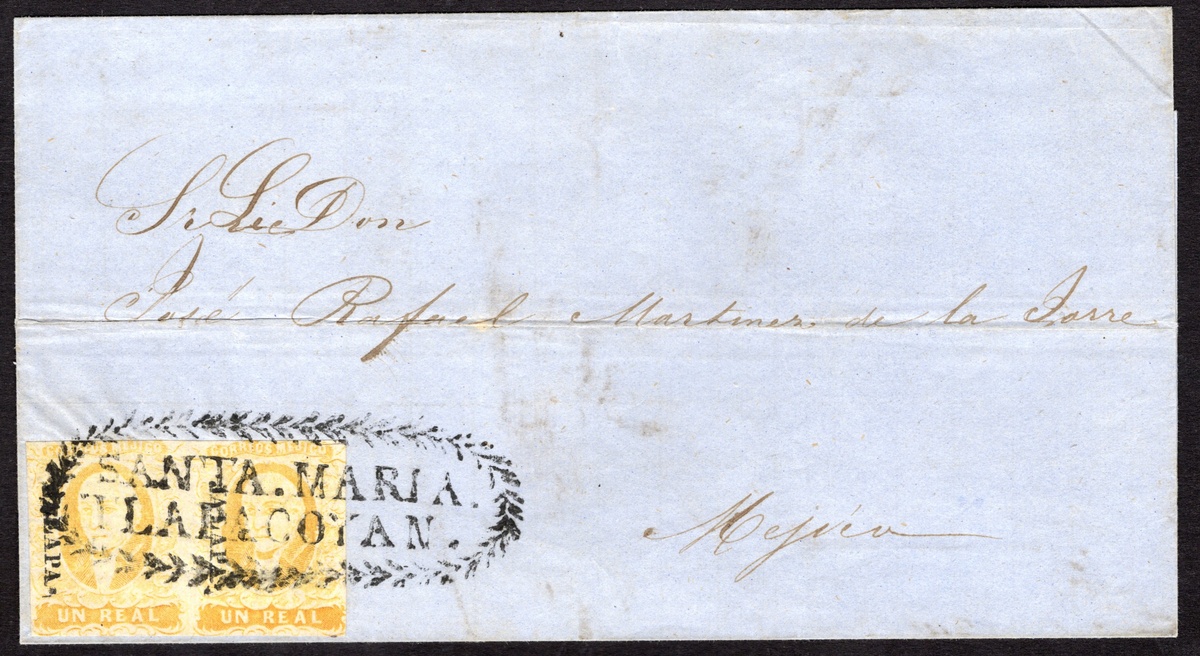 Sr Lic Don
José Rafael Martinez de la Torre
Mejico
CORREOS MEJICO
CORREOS MEJICO
SANTA. MARIA.
TLAPACOYAN.
UN REAL
UN REAL